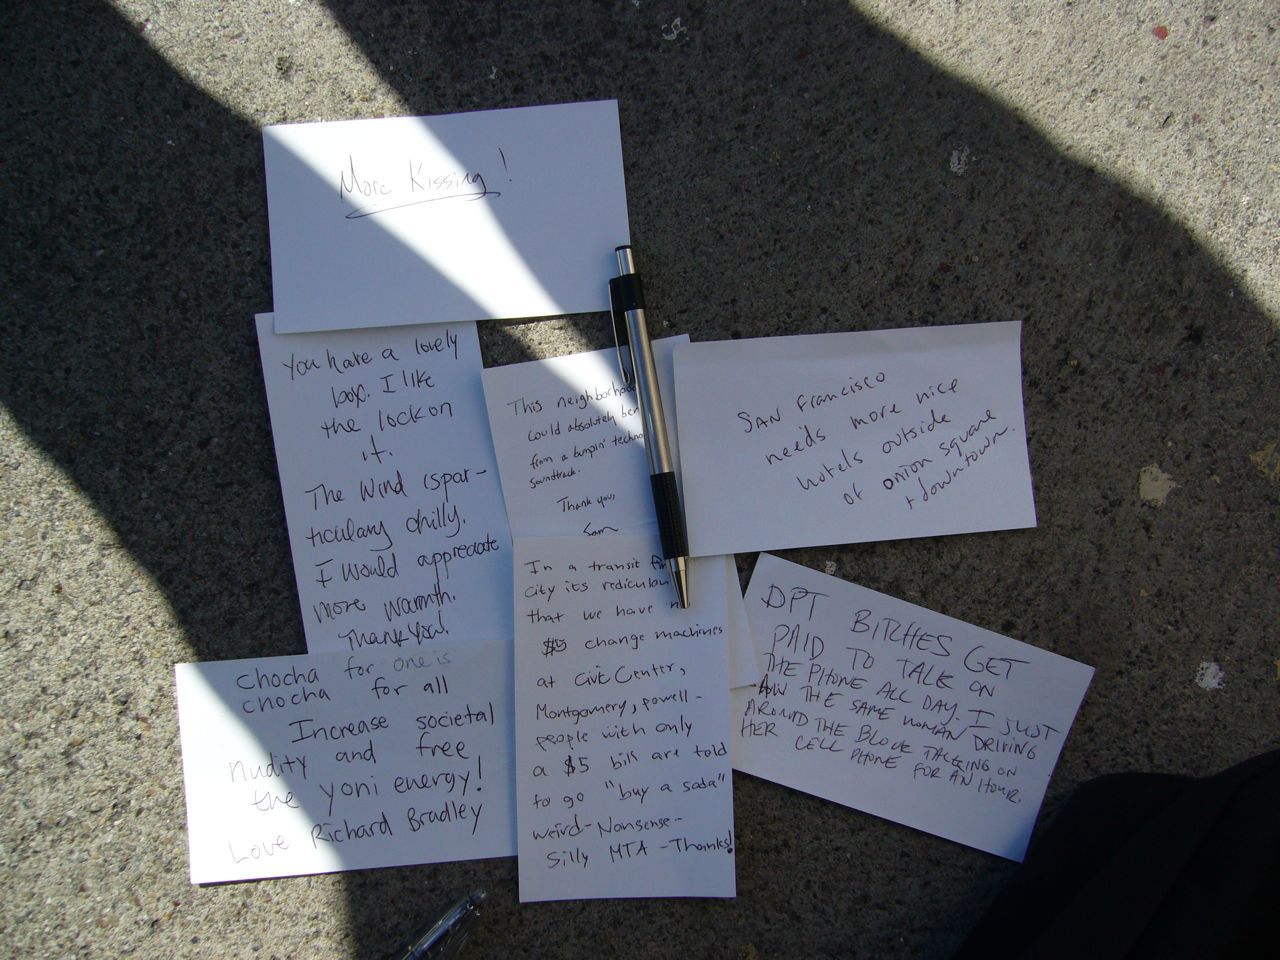 More Kissing!
You have a lovely
box. I like
the lock on
it.
The wind is par-
ticulary chilly.
I would appreciate
more warmth.
Thank you!
This neighborhood
could absolutely ben
from a bumpin' techno
soundtrack.
Thank you,
Sam
San Francisco
needs more nice
hotels outside
of union square
+ downtown.
In a transit
city its rediculou
that we have n
$5 change machines
at Civic Center,
Montgomery, powell-
people with only
a $5 bill are told
to go "buy a soda"
weird-Nonsense-
Silly MTA -Thanks!
DPT BITCHES GET
PAID TO TALK ON
THE PHONE ALL DAY. I JUST
SAW THE SAME WOMAN DRIVING
AROUND THE BLOCK TALKING ON
HER CELL PHONE FOR AN HOUR.
Chocha for one is
chocha for all
Increase societal
nudity and free
the yoni energy!
Love Richard Bradley